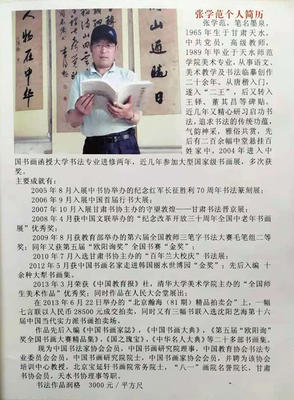 张学范个人简历
张学范，笔名墨泉，
1965年生于甘肃天水，
中共党员，高级教师，
1989年毕业于天水师范
学院美术专业，从事语文、
美术教学及书法临摹创作
二十余年，从唐楷入门，
遂入“二王”，后又转入
王铎、董其昌等碑贴，
近几年又精心研习启功书
法，追求书法的传统功蕴，
气韵神采，雅俗共赏，先
后有二百余幅中堂悬挂百
姓家中，2004年进入中
国书画函授大学书法专业进修两年，近几年参加大型国家级书画展，多次获
奖。
主要成就有：
2005年8月入展中书协举办的纪念红军长征胜利70周年书法篆刻展；
2006年9月入展中国首届行书大展；
2007年10月入展甘肃书协主办的守望敦煌——甘肃书法晋京展；
2008年4月获中国文联举办的“纪念改革开放三十周年全国中老年书画
展”优秀奖；
2009年8月获教育部举办的第六届全国教师三笔字书法大赛毛笔组二等
奖；同年又获第五届“欧阳询奖”全国书赛“金奖”；
2010年7月入选甘肃书协主办的“百年兰大校庆”书法展；
2012年5月获中国书画名家走进韩国丽水世博园“金奖”；先后入编十
余种大型书画集。
2013年3月荣获《中国教育报》社，清华大学美术学院主办的“全国师
生美术作品”优秀奖；同时作品在人民大会堂展出；
在2013年6月22日举办的“北京瀚海（81期）精品拍卖会”上，一幅
七言联以人民币28500元成交拍卖，同时又有三幅书联入选沈阳艺海第十六
届中国当代实力派书画拍卖场。
作品先后入编《中国书画家志》，《中国书画大典》，《第五届“欧阳询”
奖全国书画大赛精品集》，《国之瑰宝》，《中华名人大典》等二十多部书画集。
现为中国书法家协会会员，中国书画研究院理事，中国教育协会书法专
业委员会会员，中国书画研究院院士，中国书画家协会会员，并聘为该协会
培训中心教授，北京宝延轩书画院常务院士，“八一”画院名誉院长，甘肃
书协会员，天水书协理事等职。
书法作品润格 3000元/平方尺